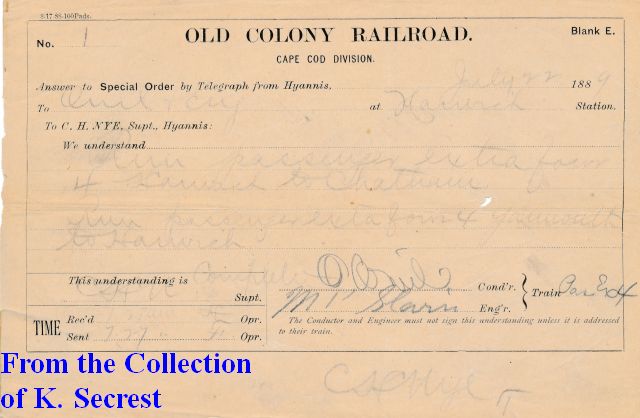 8-17-88-100Pads.
No. 1 OLD COLONY RAILROAD. Blank E.
CAPE COD DIVISION.
Answer to Special Order by Telegraph from Hyannis, July 22 1889
To at Harwich Station.
To C. H. NYE, Supt., Hyannis:
We understand
Run passenger extra from
4 Harwich to Chatham
Run passenger extra from 4 Yarmouth
to Harwich
This understanding is Supt. Cond'r. Train Pas Ex 4
M Engr.
TIME Rec'd Opr.
Sent 727 Opr.
The Conductor and Engineer must not sign this understanding unless it is addressed
to their train.
C H Nye
From the Collection
of K. Secrest